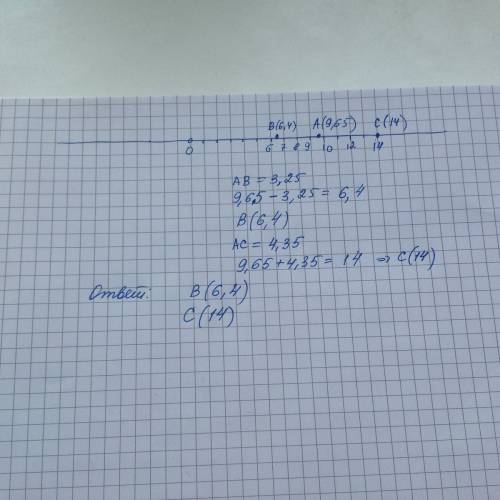 B(6,4) A(9,65) C(14)
0 6 7 8 9 10 12 14
AB = 3,25
9,65 - 3,25 = 6,4
B(6,4)
AC = 4,35
9,65 + 4,35 = 14 ⇒ C(14)
Ответ: B(6,4)
C(14)